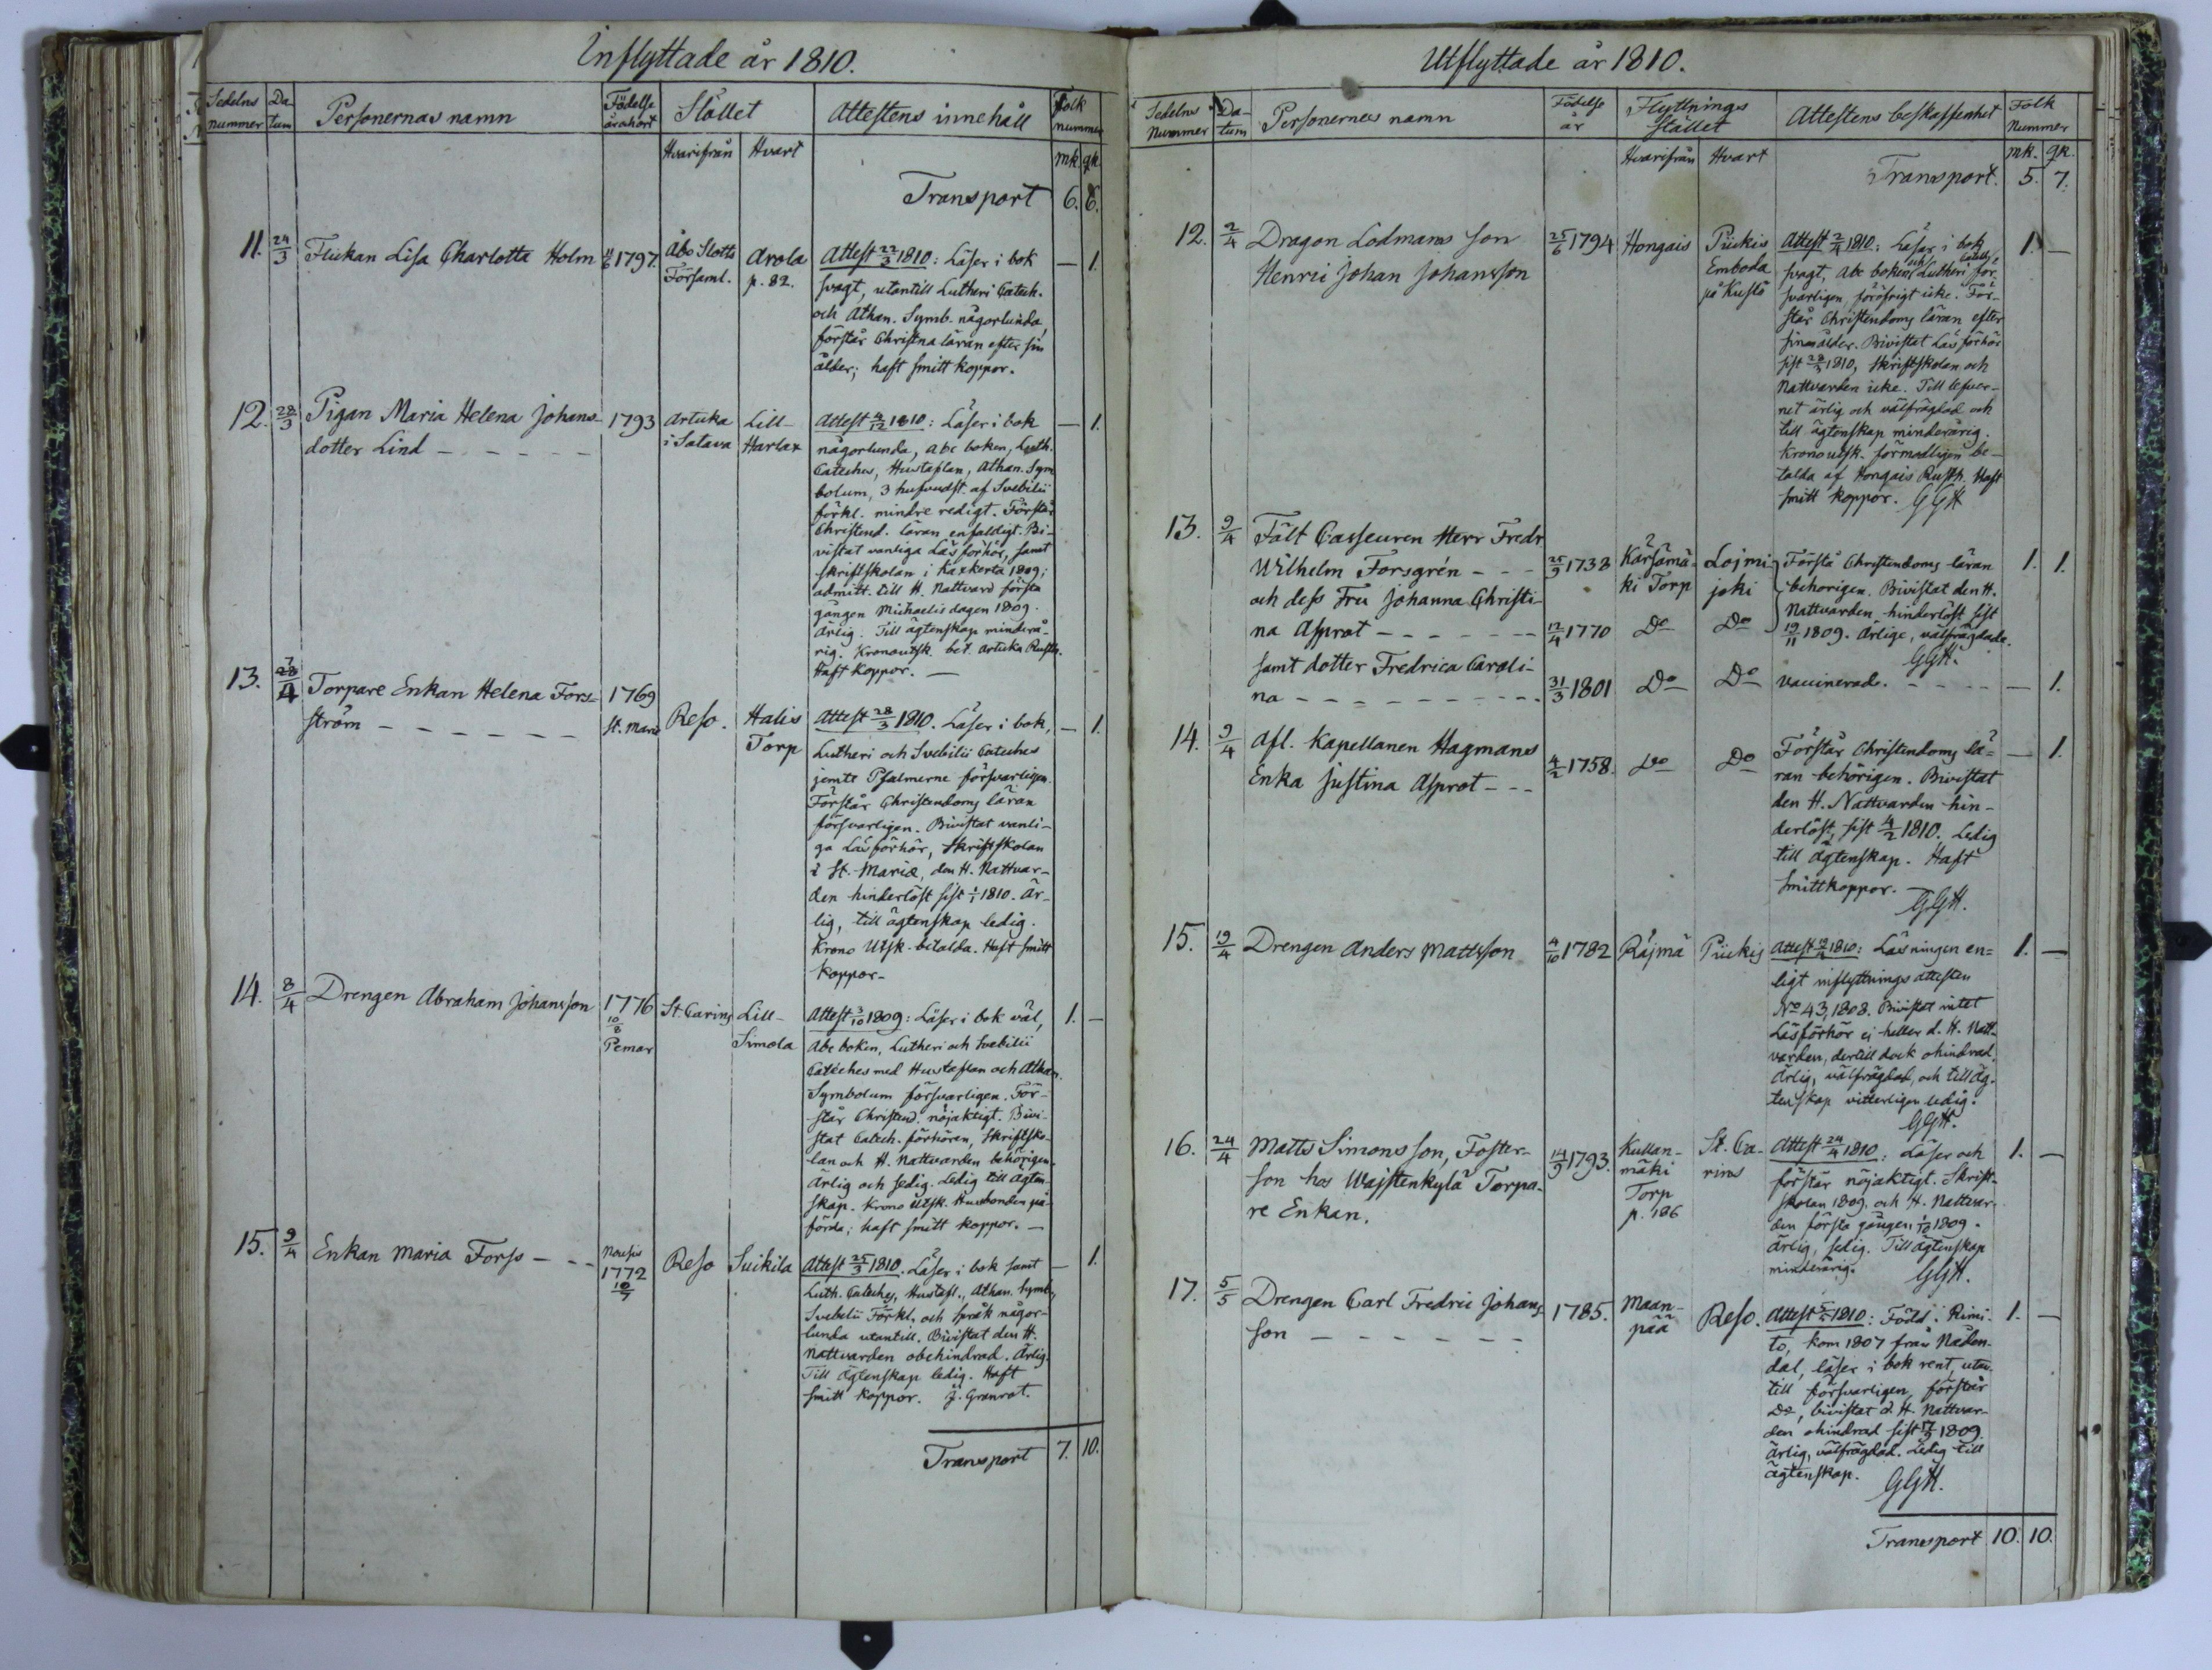 Inflyttade år 1810.
Sedelns nummer
Datum
Personernas namn
Födelse år och ort
Stället
Attestens innehåll
Folk nummer
Hvarifrån
Hvart
mk.
qk.
Transport 6. 6.
11. 24/3 Flickan Lisa Charlotta Holm 11/6 1797. Åbo Slotts Arola Attest 22/3 1810: Läser i bok — 1.
Församl. p. 82. svagt, utantill Lutheri Catech.
och Athan. Symb. någorlunda,
förstår Christna läran efter sin
ålder; haft smitt koppor.
12. 28/3 Pigan Maria Helena Johans- 1793 Artuka Lill- Attest 4/12 1810: Läser i bok — 1.
dotter Lind — i Satava Harlax någorlunda, Abc boken, Luth.
Cateches, Hustaflan, Athan. Sym
bolum, 3 hufvudst. af Svebilii
förkl. mindre redigt. Förstår
Christend. läran enfaldigt. Bi-
vistat vanliga Läsförhör, samt
skriftskolan i Kaxkerta 1809;
admitt. till H. Nattvard första
gången Michaelis dagen 1809.
Ärlig. Till ägtenskap minderå-
rig. Kronoutsk. bet. Artuka Rusth.
Haft koppor. —
13. 7/4 Torpare Enkan Helena Fors- 1769
ström — St. Marie Reso. Halis Attest 28/3 1810. Läser i bok, — 1.
Torp Lutheri och Svebilii Cateches
jemte Psalmerne försvarligen.
Förstår Christendoms läran
försvarligen. Bivistat vanli-
ga Läsförhör, Skriftskolan
i St. Mariæ, den H. Nattvar-
den hinderlöst sist 1/1 1810. Är-
lig, till ägtenskap ledig.
Krono Utsk. betalda. Haft smitt
koppor-
14. 8/4 Drengen Abraham Johansson 1776 St. Carins Lill- Attest 3/10 1809: Läser i bok väl, 1. —
10/8 Pemar Simola Abc boken, Lutheri och Svebilii
Cateches med Hustaflan och Athan.
Symbolum försvarligen. För-
står Christend. nöjaktigt. Bivi-
stat Catech. förhören, Skriftsko-
lan och H. Nattvarden behörigen.
Ärlig och sedig. Ledig till ägten-
skap. Krono Utsk. Husbonden på-
förda; haft smitt koppor. —
15. 9/4 Enkan Maria Forss — Nousis 1772 10/7 Reso Suikila Attest 25/3 1810. Läser i bok samt — 1.
Luth. Cateches, Hustafl., Athan. Symb.,
Svebilii Förkl. och Språk någor-
lunda utantill. Bivistat den H.
Nattvarden obehindrad. Ärlig.
Till ägtenskap ledig. Haft
smitt koppor. J. Granrot.
Transport 7. 10.
Utflyttade år 1810.
Sedelns Nummer
Datum
Personernas namn
Födelse år
Flyttnings stället
Attestens beskaffenhet
Folk Nummer
Hvarifrån
Hvart
mk.
qk.
Transport. 5. 7.
12. 2/4 Dragon Lodmans son 25/6 1794 Hongais Piikis Attest 2/4 1810: Läser i bok 1. —
Henric Johan Johansson Emboda svagt, Abc boken och Lutheri Catech. för-
på Kustö svarligen, föröfrigt icke. För-
står Christendoms läran efter
sin ålder. Bivistat Läsförhör
sist 28/2 1810, Skriftskolan och
Nattvarden icke. Till lefver-
net ärlig och välfrägdad och
till ägtenskap minderårig.
Kronoutsk. förmodligen be-
talda af Hongais Rusth. Haft
smitt koppor. GGH
13. 9/4 Fält Casseuren Herr Fredr
Wilhelm Forsgrén — 25/9 1738 Kärsämä- Loimi- Förstå Christendoms läran 1. 1.
och dess Fru Johanna Christi- ki Torp joki behörigen. Bivistat den H.
na Asprot — 12/4 1770 Do Do Nattvarden hinderlöst sist
19/11 1809. Ärlige, välfrägdade.
GGH.
samt dotter Fredrica Caroli-
na — 31/3 1801 Do Do vaccinerad. — 1.
14. 9/4 Afl. Kapellanen Hagmans Förstår Christendoms lä- — 1.
Enka Justina Asprot — 4/2 1758. Do Do ran behörigen. Bivistat
den H. Nattvarden hin-
derlöst, sist 4/2 1810. Ledig
till ägtenskap. Haft
smittkoppor.
GGH.
15. 19/4 Drengen Anders Mattsson 4/10 1782 Räjmä Piikis Attest 19/4 1810: Läsningen en- 1. —
ligt inflyttnings attesten
No 43, 1808. Bivistat intet
Läsförhör ej heller d. H. Natt-
varden, dertill dock ohindrad.
Ärlig, välfrägdad, och till äg-
tenskap vitterligen ledig.
GGH.
16. 24/4 Matts Simonsson, Foster- 14/9 1793. Kullan- St. Ca- Attest 24/4 1810: Läser och 1. —
son hos Wajstenkylä Torpa- mäki rins förstår nöjaktigt. Skrift-
re Enkan. Torp skolan 1809. och H. Nattvar-
p. 186 den första gången 1/10 1809.
Ärlig, sedig. Till ägtenskap
minderårig. GGH.
17. 5/5 Drengen Carl Fredric Johans- 1785. Maan- Reso. Attest 5/5 1810: Född i Rimi- 1. —
son — pää to, kom 1807 från Nåden-
dal, läser i bok rent, utan-
till försvarligen, förstår
Do, bivistat d. H. Nattvar-
den ohindrad sist 17/9 1809.
Ärlig, välfrägdad. Ledig till
ägtenskap. GGH.
Transport 10. 10.